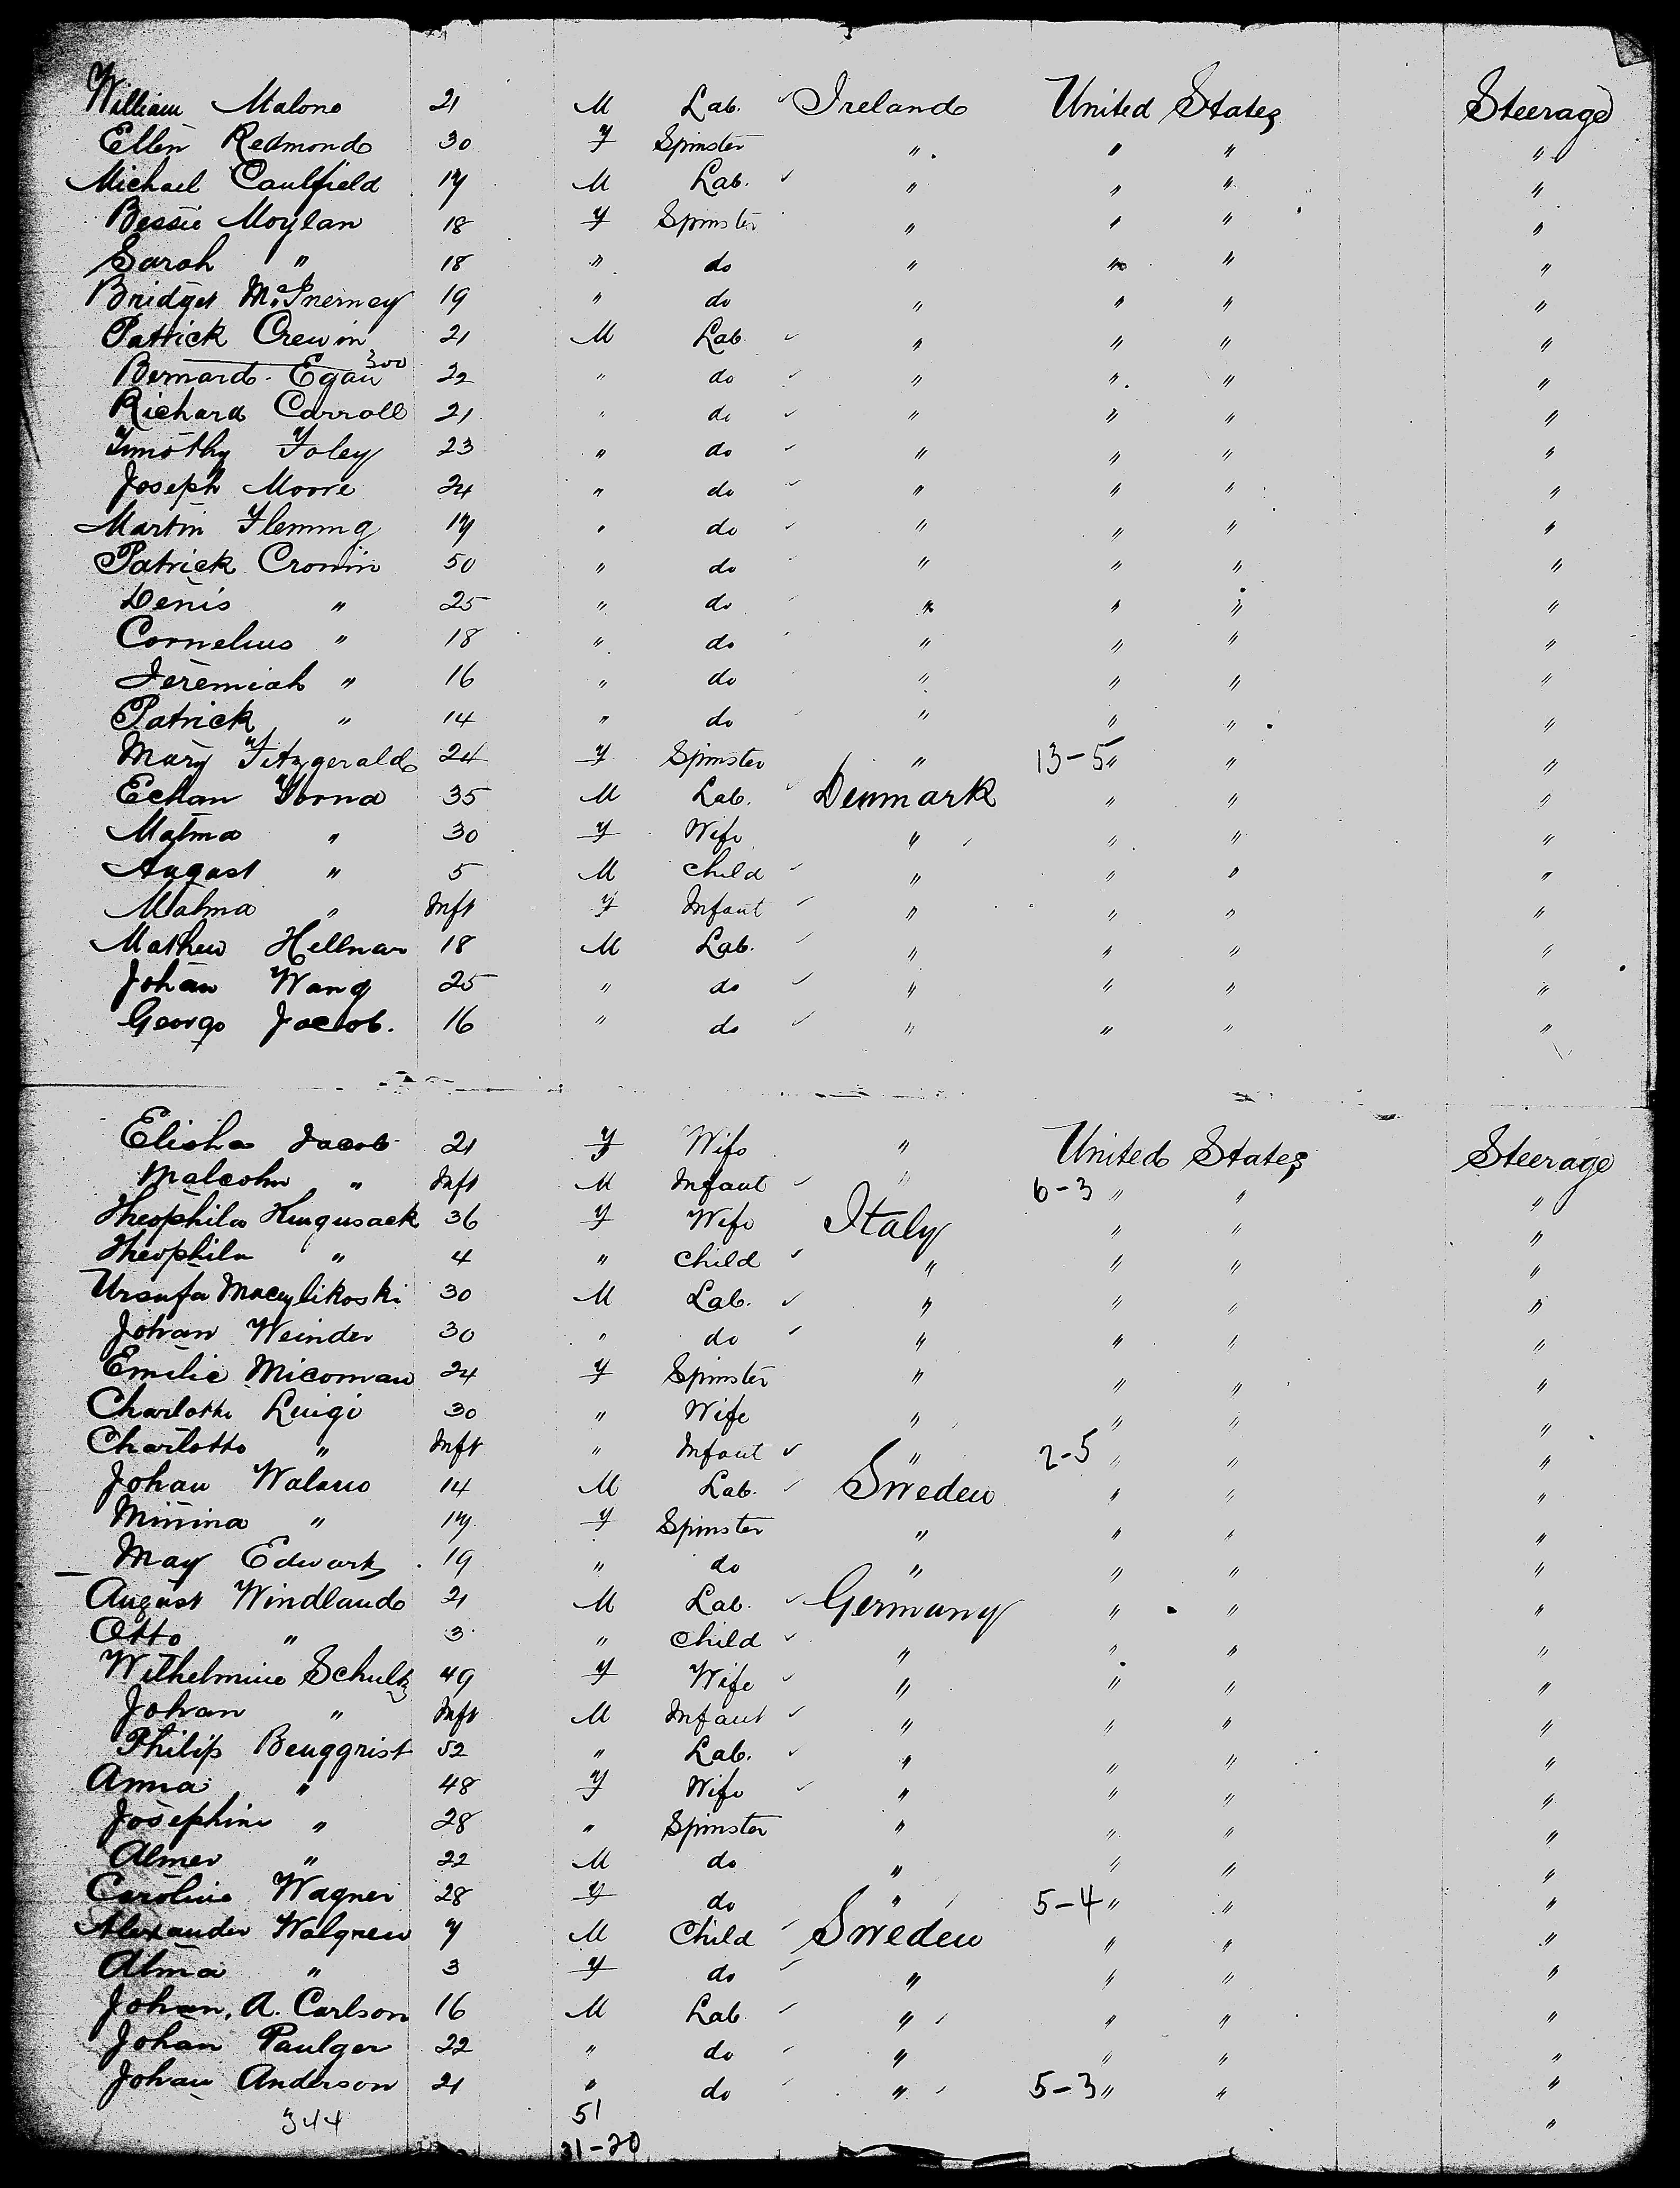 William Malone 21 M Lab. Ireland United States Steerage
Ellen Redmond 30 F Spinster " " " "
Michael Caulfield 17 M Lab. " " " "
Bessie Moylan 18 F Spinster " " " "
Sarah " 18 " do " " " "
Bridget McInerney 19 " do " " " "
Patrick Crewin 21 M Lab " " " "
300
Bernard Egan 22 " do " " " "
Richard Carroll 21 " do " " " "
Timothy Foley 23 " do " " " "
Joseph Moore 24 " do " " " "
Martin Fleming 17 " do " " " "
Patrick Cronin 50 " do " " " "
Denis " 25 " do " " " "
Cornelius " 18 " do " " " "
Jeremiah " 16 " do " " " "
Patrick " 14 " do " " " "
Mary Fitzgerald 24 F Spinster " 13-5 " " "
Echan 35 M Lab. Denmark " " "
Malma " 30 F Wife " " " "
August " 5 M Child " " " "
Malma " Inft F Infant " " " "
Mathew Hellnar 18 M Lab. " " " "
Johan Wang 25 " do " " " "
George Jacob. 16 " do " " " "
Elisha Jacob 21 F Wife " United States Steerage
Malcohm " Inft M Infant " 6-3 " " "
Theophila 36 F Wife Italy " " "
Theophila " 4 " Child " " " "
30 M Lab. " " " "
Johan Weinder 30 " do " " " "
Emilie Micoman 24 F Spinster " " " "
Charlotte Luigi 30 " Wife " " " "
Charlotte " Inft " Infant " 2-5 " " "
Johan 14 M Lab. Sweden " " "
Minina " 17 F Spinster " " " "
May Edwark 19 " do " " " "
August Windland 21 M Lab. Germany " " "
Otto " 3 " Child " " " "
Wilhelmine Schultz 49 F Wife " " " "
Johan " Inft M Infant " " " "
Philip Benggrist 52 " Lab. " " " "
Anna " 48 F Wife " " " "
Josephine " 28 " Spinster " " " "
Almer " 22 M do " " " "
Caroline Wagner 28 F do " 5-4 " " "
Alexander Walgren 7 M Child Sweden " " "
Alma " 3 F do " " " "
Johan. A. Carlson 16 M Lab. " " " "
Johan Paulger 22 " do " " " "
Johan Anderson 21 " do " 5-3 " " "
344 51 "
31-20